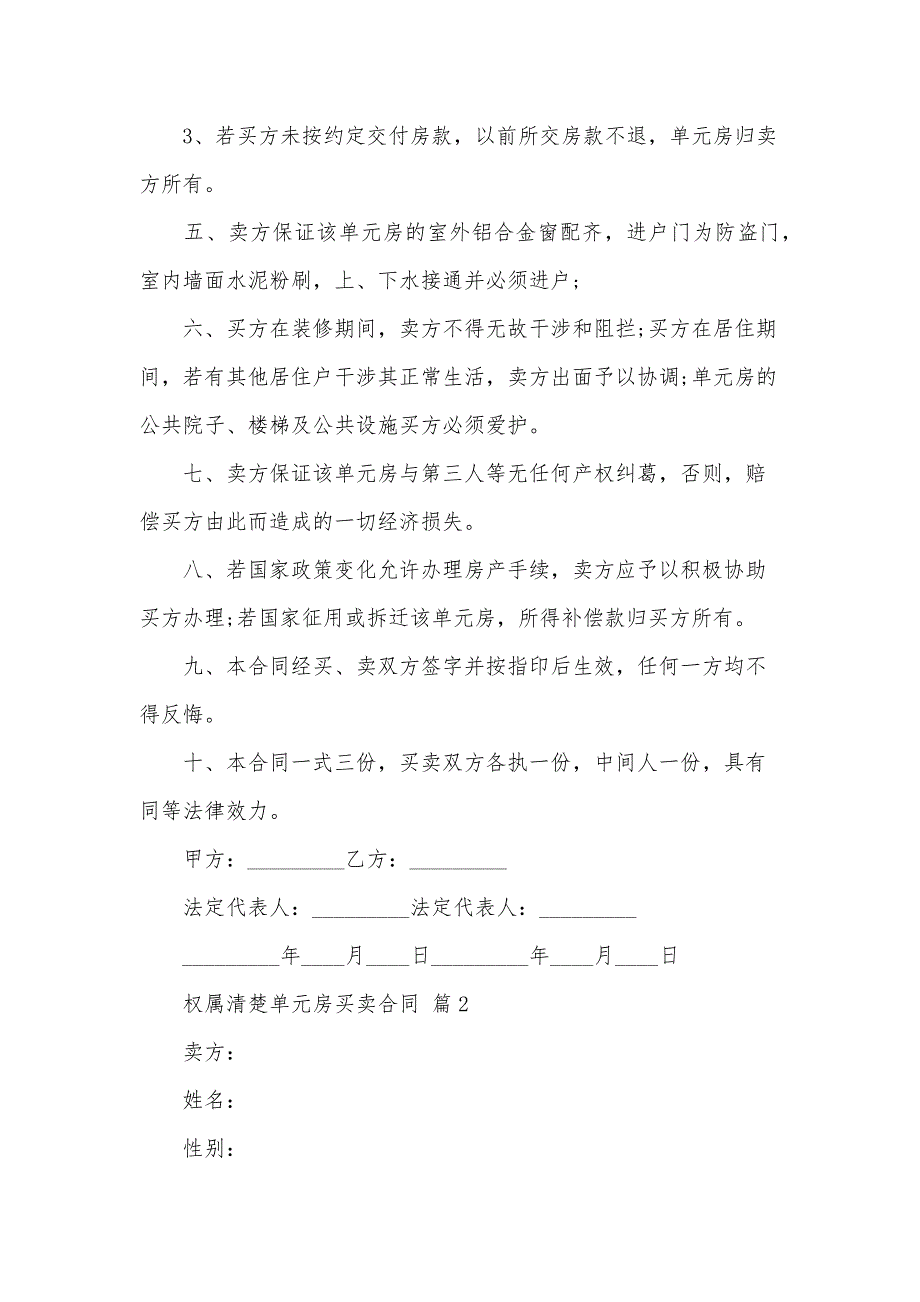 3、若买方未按约定交付房款，以前所交房款不退，单元房归卖
方所有。
五、卖方保证该单元房的室外铝合金窗配齐，进户门为防盗门，
室内墙面水泥粉刷，上、下水接通并必须进户;
六、买方在装修期间，卖方不得无故干涉和阻拦;买方在居住期
间，若有其他居住户干涉其正常生活，卖方出面予以协调;单元房的
公共院子、楼梯及公共设施买方必须爱护。
七、卖方保证该单元房与第三人等无任何产权纠葛，否则，赔
偿买方由此而造成的一切经济损失。
八、若国家政策变化允许办理房产手续，卖方应予以积极协助
买方办理;若国家征用或拆迁该单元房，所得补偿款归买方所有。
九、本合同经买、卖双方签字并按指印后生效，任何一方均不
得反悔。
十、本合同一式三份，买卖双方各执一份，中间人一份，具有
同等法律效力。
甲方：_________乙方：_________
法定代表人：_________法定代表人：_________
_________年____月____日_________年____月____日
权属清楚单元房买卖合同 篇2
卖方：
姓名：
性别：